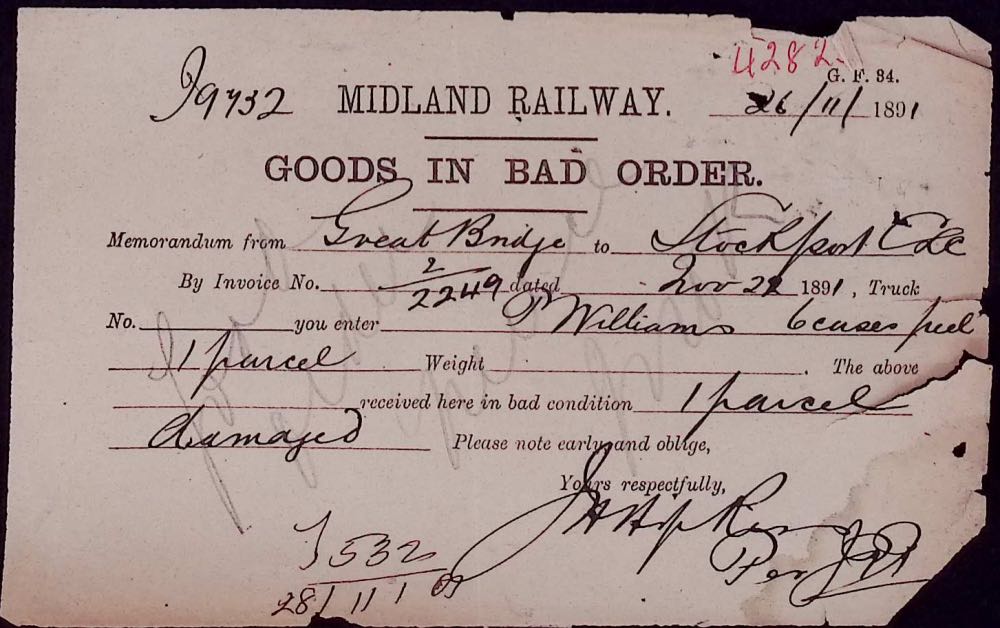 4282
G. F. 34.
J9732 MIDLAND RAILWAY. 26/11/1891
GOODS IN BAD ORDER.
Memorandum from Great Bridge to Stockport
By Invoice No. 2/2249 dated Nov 1891, Truck
No. you enter P Williams 6 cases peel
1 parcel Weight . The above
received here in bad condition 1 parcel
damaged Please note early and oblige,
Yours respectfully,
J H Hopkins
Per
532
28/11/